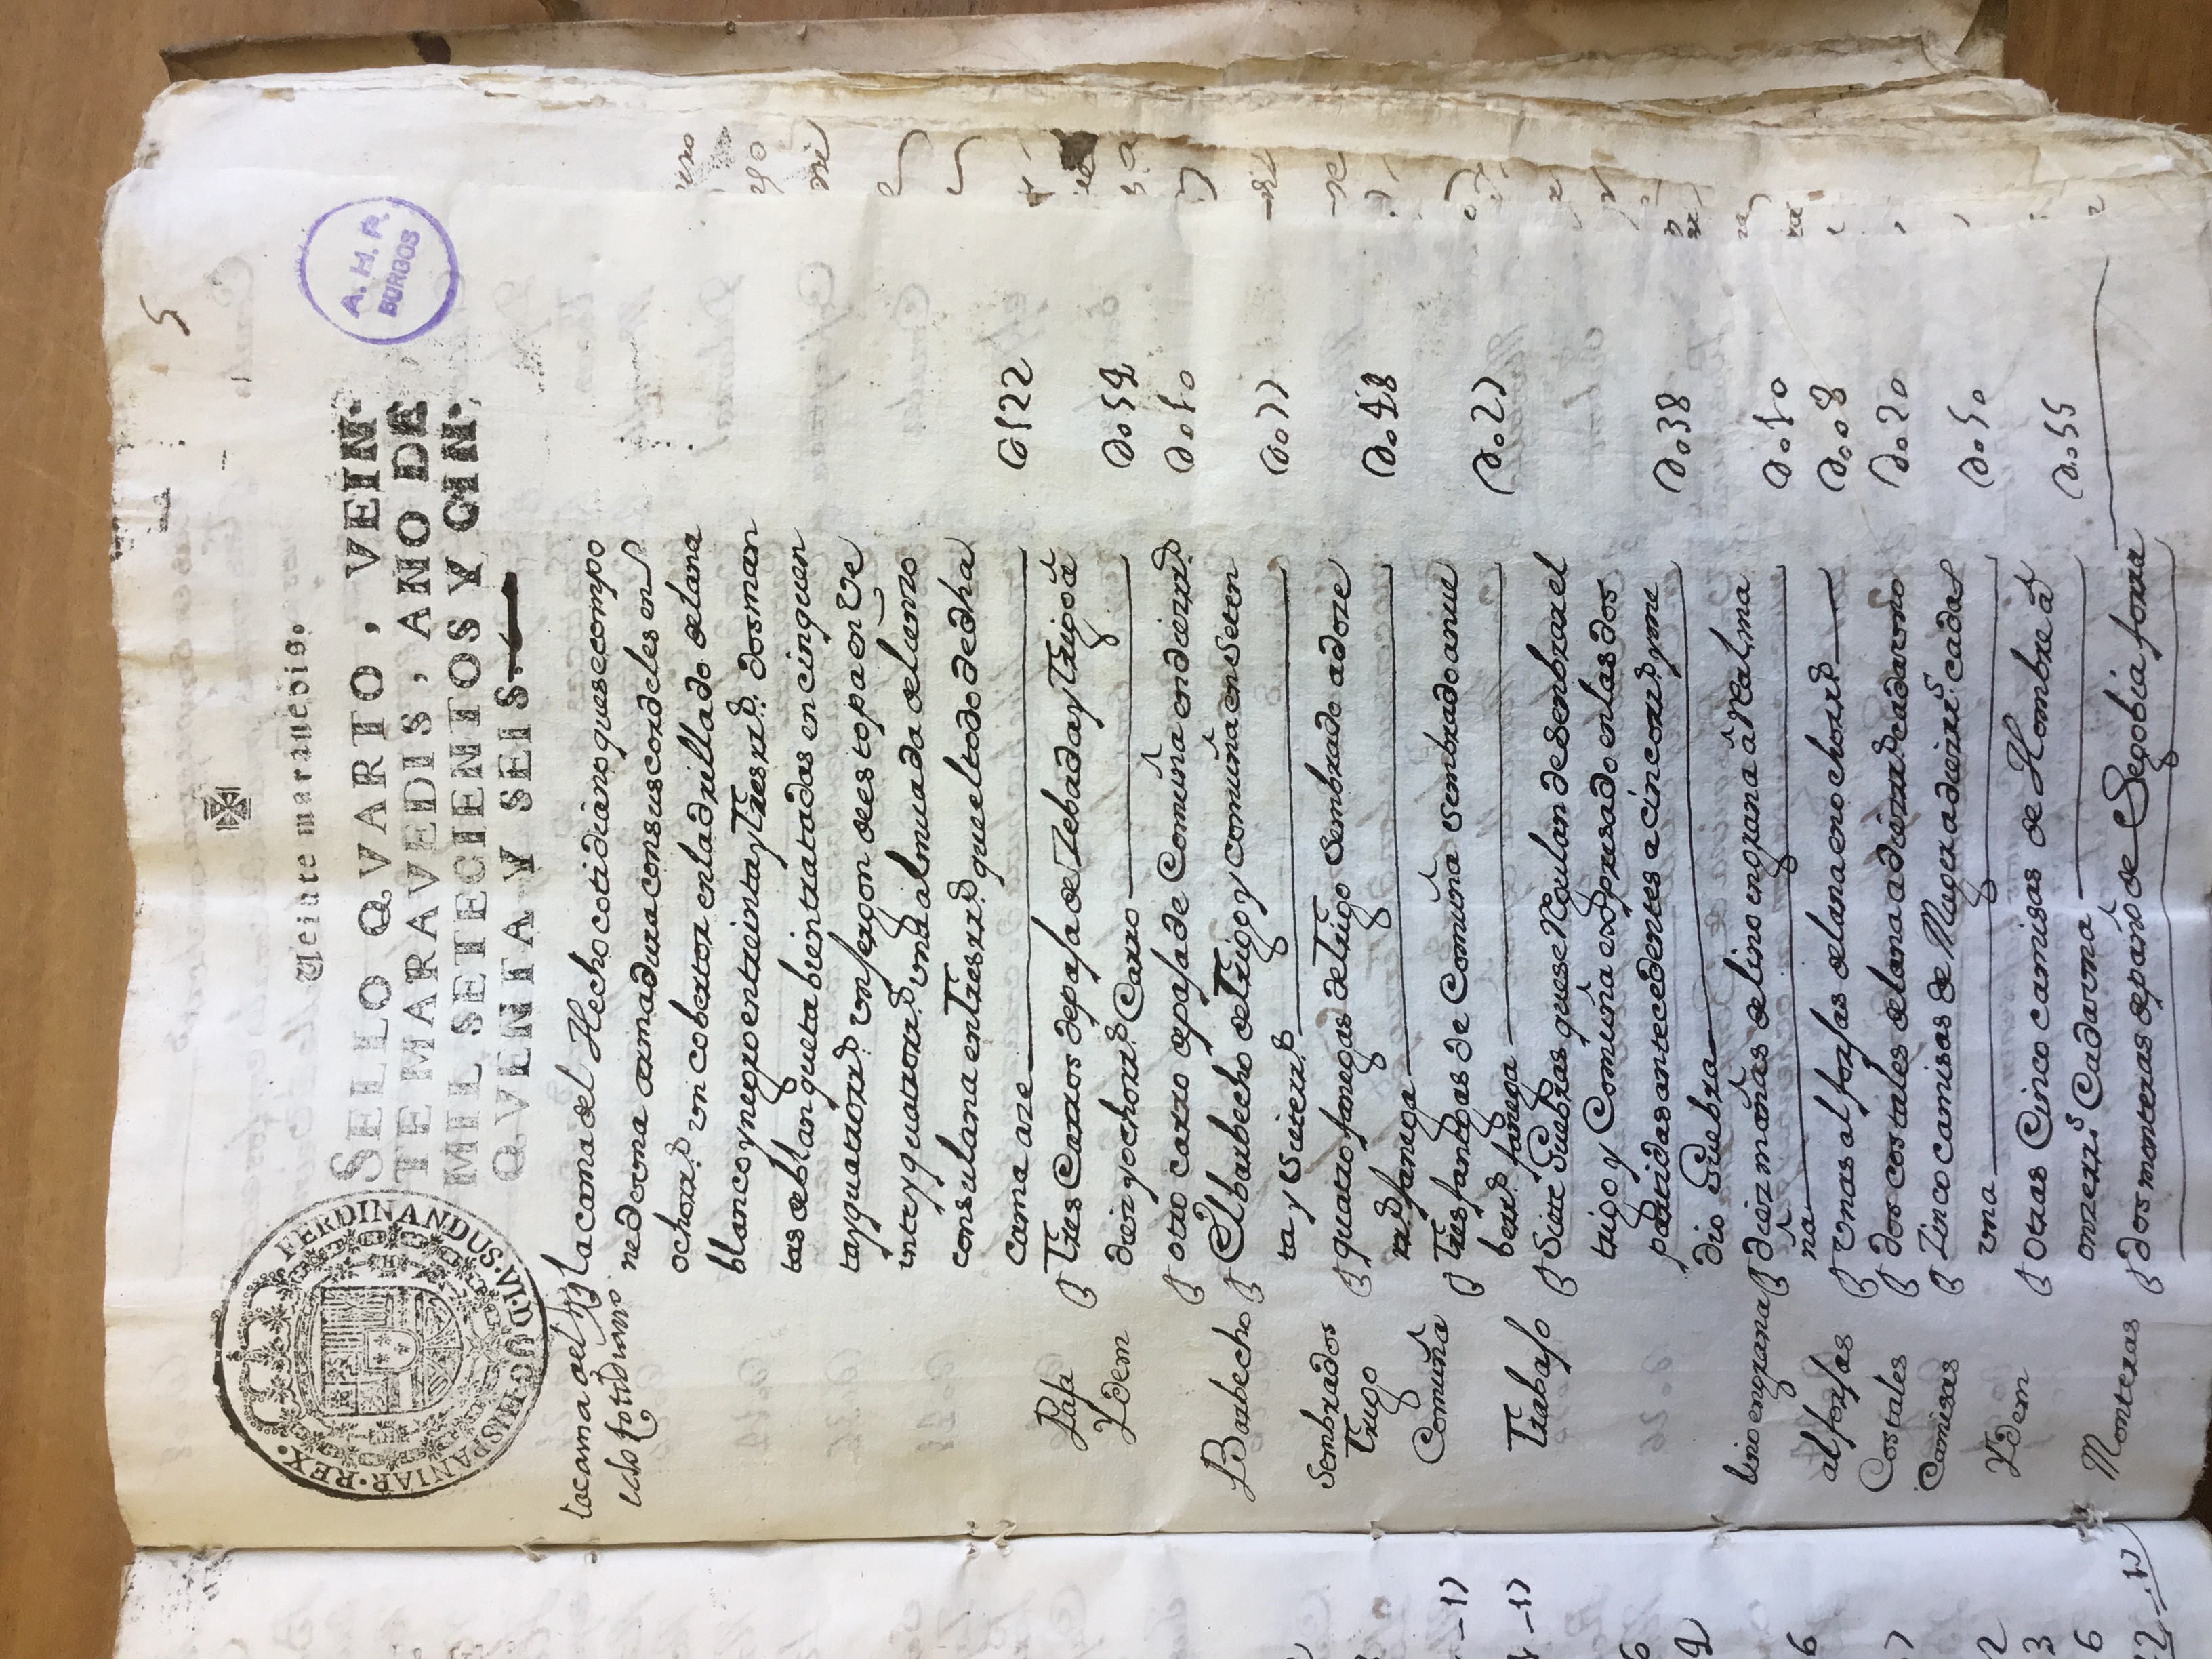 5
Veinte maravedis.
SELLO QVARTO, VEIN-
TE MARAVEDIS, AÑO DE
MIL SETECIENTOS Y CIN-
QVENTA Y SEIS.
FERDINANDUS·VI·D·G·HISPANIAR·REX·
A. H. P.
BURGOS
la cama del
Cotidiano
la cama del Hecho cotidiano que se compo
ne de vna armadura con sus cordeles en
ocho rr.s vn cobertor enladrillado de lana
blanco y negro en treinta y tres rr.s dos man
tas de blanqueta bien tratadas en cinquen
ta y quatro rr.s vn jergon de estopa en Ve
inte y quatro rr.s vna almuada de lienzo
con su lana en tres rr.s que el todo de dha
cama aze 0122
Paja
Tres Carros de paja de Zebada y Trigo â
diez y ocho rr.s Carro 0.54
Ydem
otro carro de paja de Comuña en diez rr.s 0.10
Barbecho
El barbecho de Trigo y comuña en seten
ta y siete rr.s 0.77
Sembrados
Trigo
quatro fanegas de Trigo Sembrado a doze
rr.s fanega 0.48
Comuña
Tres fanegas de Comuña sembrado a nue
be rr.s fanega 0.27
Trabajo
Siete Huebras que se Regulan de Senbrar el
trigo y Comuña expresado en las dos
partidas antecedentes a cinco rr.s y me
dio Huebra 0.38
lino en grana
diez mañas de lino en grana â Real, ma
ña 0.10
alforjas
vnas alforjas de lana en ocho rr.s 0.08
Costales
dos costales de lana a diez rr.s cada vno 0.20
Camisas
Zinco camisas de Muger a diez rr.s cada
vna 0.50
Ydem
Otras Cinco camisas de Hombre â
onze rr.s Cada vna 0.55
Monteras
dos monteras de paño de Segobia forra